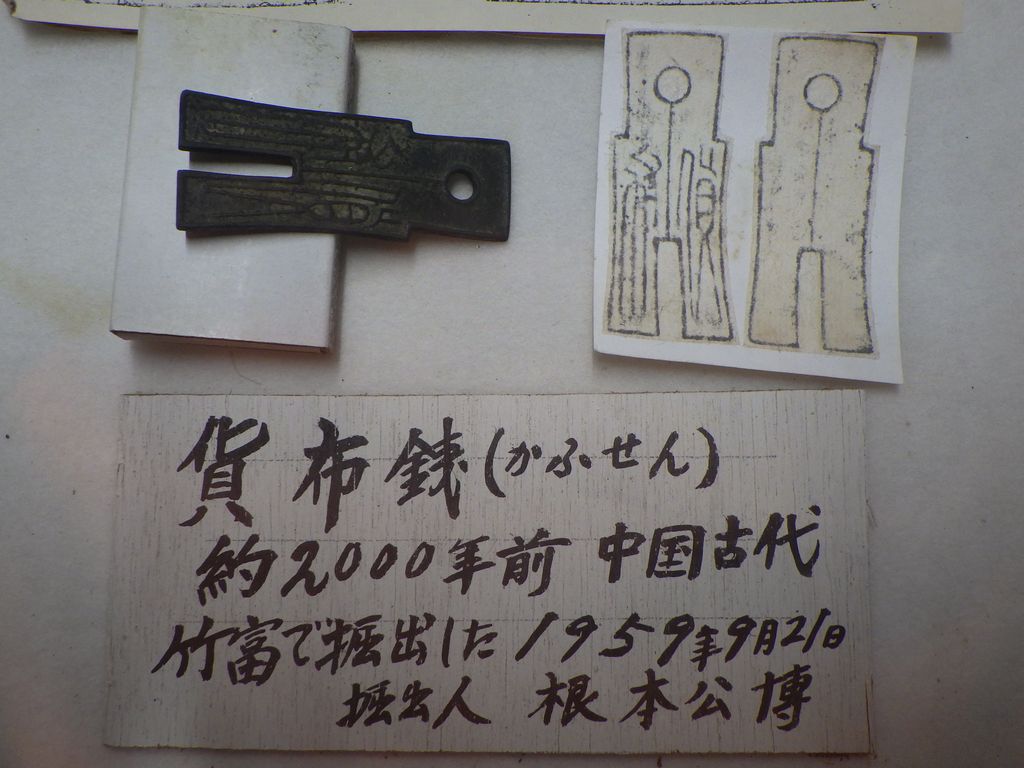 貨布銭(かふせん)
約2000年前 中国古代
竹富で掘出した 1959年9月21日
掘出人 根本公博